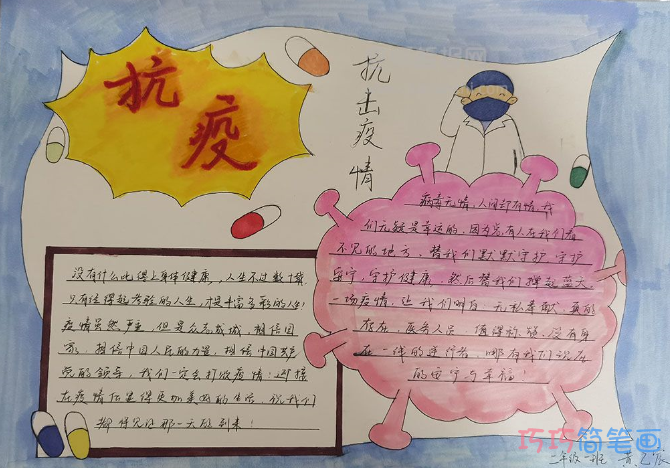 抗
疫
抗击疫情
病毒无情,人间却有情,我
们无疑是幸运的,因为总有人在我们看
不见的地方,替我们默默守护,守护
安宁,守护健康,然后替我们撑起蓝天
一场疫情,让我们明白,无私奉献,真的
存在,医务人员,值得称颂,没有身
在一线的逆行者,哪有我们现在
的安宁与幸福!
没有什么比得上身体健康,人生不过数十载
只有经得起考验的人生,才是丰富多彩的人生!
疫情虽然严重,但是众志成城,相信国
家,相信中国人民的力量,相信中国共产
党的领导,我们一定会打败疫情!迎接
在疫情后显得更加美好的生活,祝我们
都伴见证那一天的到来!
二年级一班
巧巧简笔画